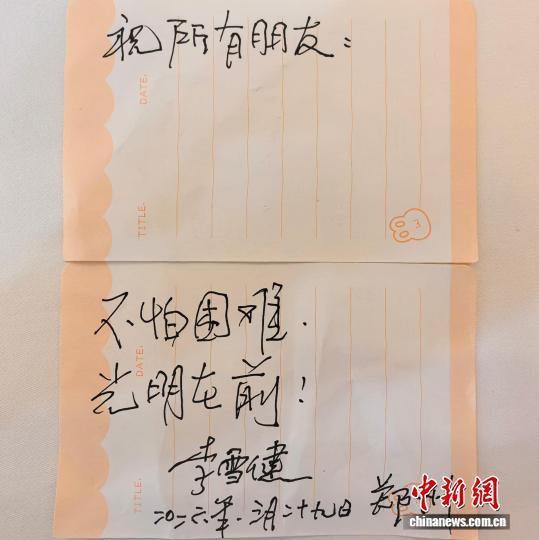 祝所有朋友：
DATE.
TITLE.
不怕困难.
DATE.
光明在前！
李雪健
TITLE.
二〇二六年.月二十九日
郑
中新网
chinanews.com